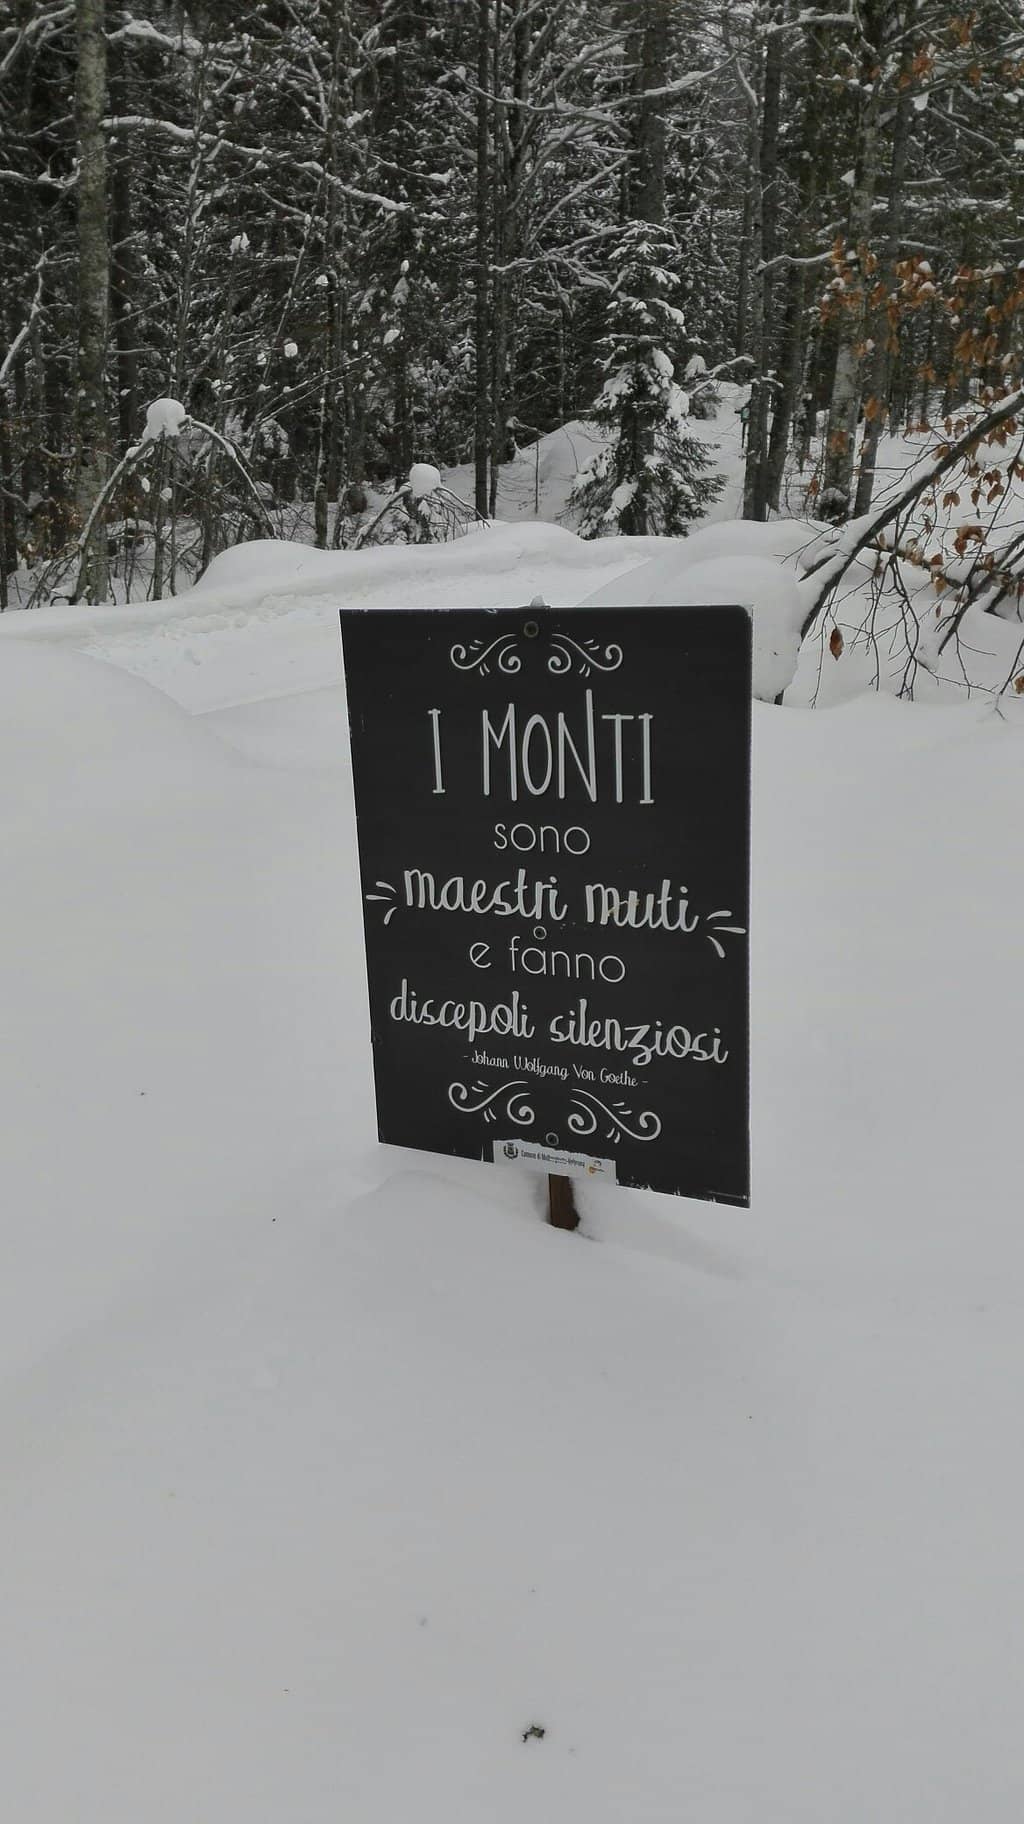 I MONTI
sono
maestri muti
e fanno
discepoli silenziosi
- Johann Wolfgang Von Goethe -
Comune di